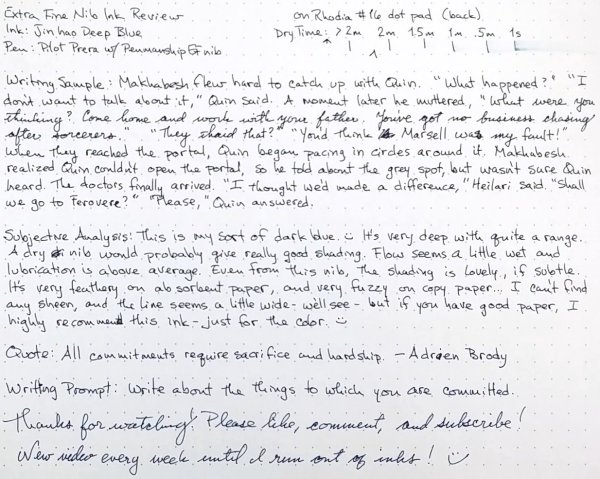 Extra Fine Nib Ink Review on Rhodia #16 dot pad (back)
Ink: Jinhao Deep Blue Dry Time: >2m 2m 1.5m 1m .5m 1s
Pen: Pilot Prera w/ Penmanship EF nib
Writing Sample: Makhabesh flew hard to catch up with Quin. "What happened?" "I
don't want to talk about it," Quin said. A moment later he muttered, "What were you
thinking? Come home and work with your father. You've got no business chasing
after sorcerers." "They said that?" "You'd think Marsell was my fault!"
When they reached the portal, Quin began pacing in circles around it. Makhabesh
realized Quin couldn't open the portal, so he told about the grey spot, but wasn't sure Quin
heard. The doctors finally arrived. "I thought we'd made a difference," Heilari said. "Shall
we go to Ferovere?" "Please," Quin answered.
Subjective Analysis: This is my sort of dark blue. It's very deep with quite a range.
A dry nib would probably give really good shading. Flow seems a little wet and
lubrication is above average. Even from this nib, the shading is lovely, if subtle.
It's very feathery on absorbent paper, and very fuzzy on copy paper... I can't find
any sheen, and the line seems a little wide - we'll see - but if you have good paper, I
highly recommend this ink - just for the color. :)
Quote: All commitments require sacrifice and hardship. — Adrien Brody
Writing Prompt: Write about the things to which you are committed.
Thanks for watching! Please like, comment, and subscribe!
New video every week until I run out of inks! :)